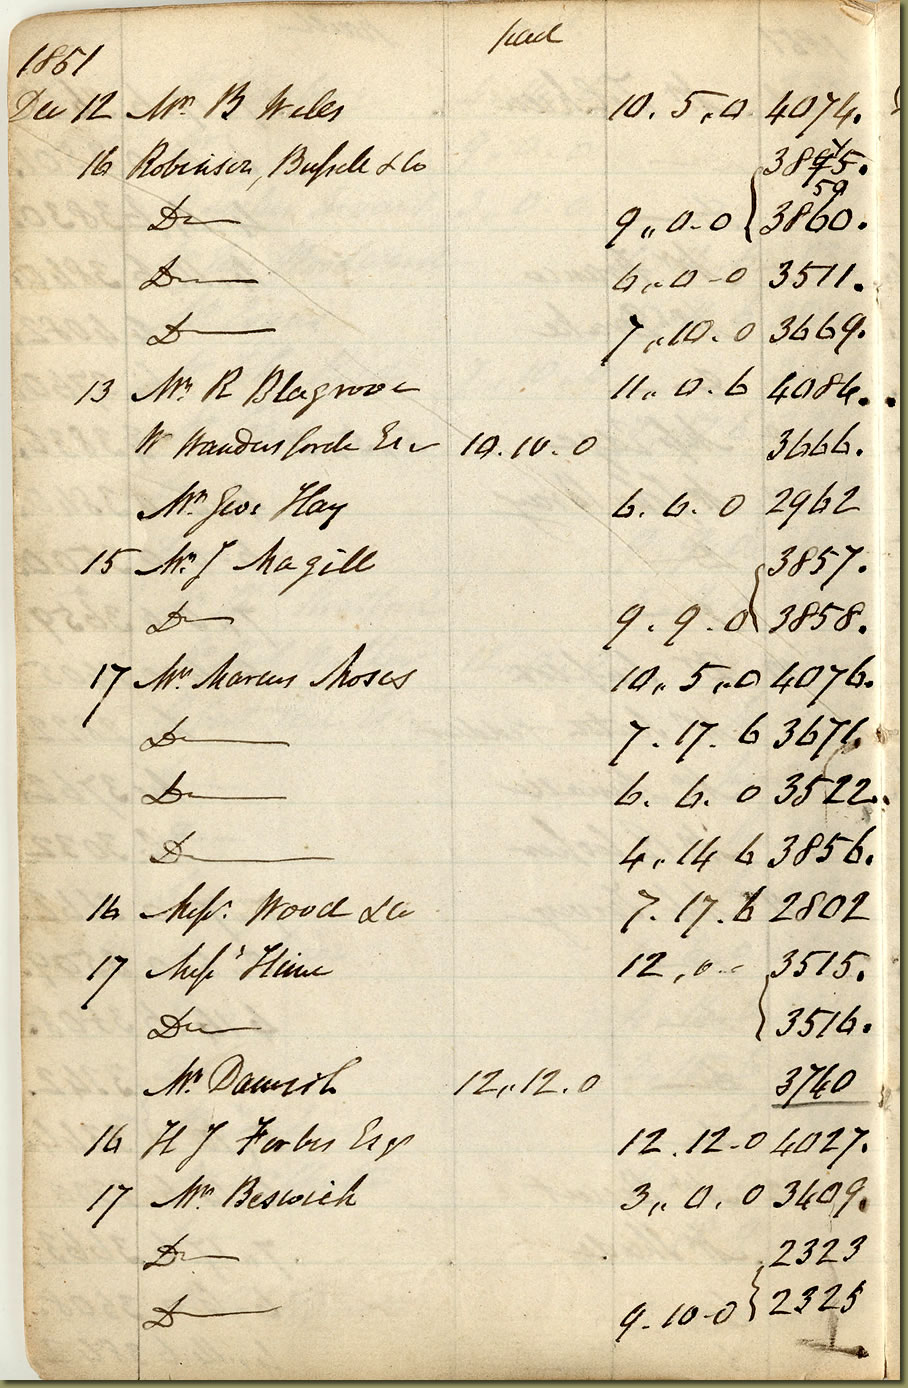 paid
1851
Dec 12 Mr. B Webs 10. 5,,0 4074.
16 Robinson, Bussell &Co 3845.
59
Do 9,,0-0 3860.
Do 6,,0-0 3511.
Do 7,,10.0 3669.
13 Mr. R Blagrove 11,,0.6 4086.
W Wandesforde Esr 10.10.0 3666.
Mr. Geo: Hay 6.6.0 2962
15 Mr. J Magill 3857.
Do 9.9.0 3858.
17 Mr. Marcus Moses 10,,5,,0 4076.
Do 7.17.6 3671.
Do 6.6.0 3522.
Do 4,,14 6 3856.
16 Messrs. Wood &Co 7.17.6 2802
17 Messrs Hime 12,,0-- 3515.
Do 3516.
Mr. 12,,12.0 3740
16 H J Forbes Esqr 12.12-0 4027.
17 Mr. Beswick 3,,0.0 3409.
Do 2323
Do 9-10-0 2325